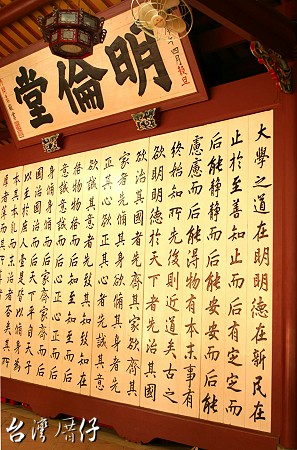 明倫堂
四月穀旦
大學之道在明明德在新民在
止於至善知止而后有定定而
后能靜靜而后能安安而后能
慮慮而后能得物有本末事有
終始知所先後則近道矣古之
欲明明德於天下者先治其國
欲治其國者先齊其家欲齊其
家者先脩其身欲脩其身者先
正其心欲正其心者先誠其意
欲誠其意者先致其知致知在
格物物格而后知至知至而后
意誠意誠而后心正心正而后
身脩身脩而后家齊家齊而后
國治國治而后天下平自天子
以至於庶人壹是皆以脩身為
本其本亂而末治者否矣其所
厚者薄而其所
台灣厝仔